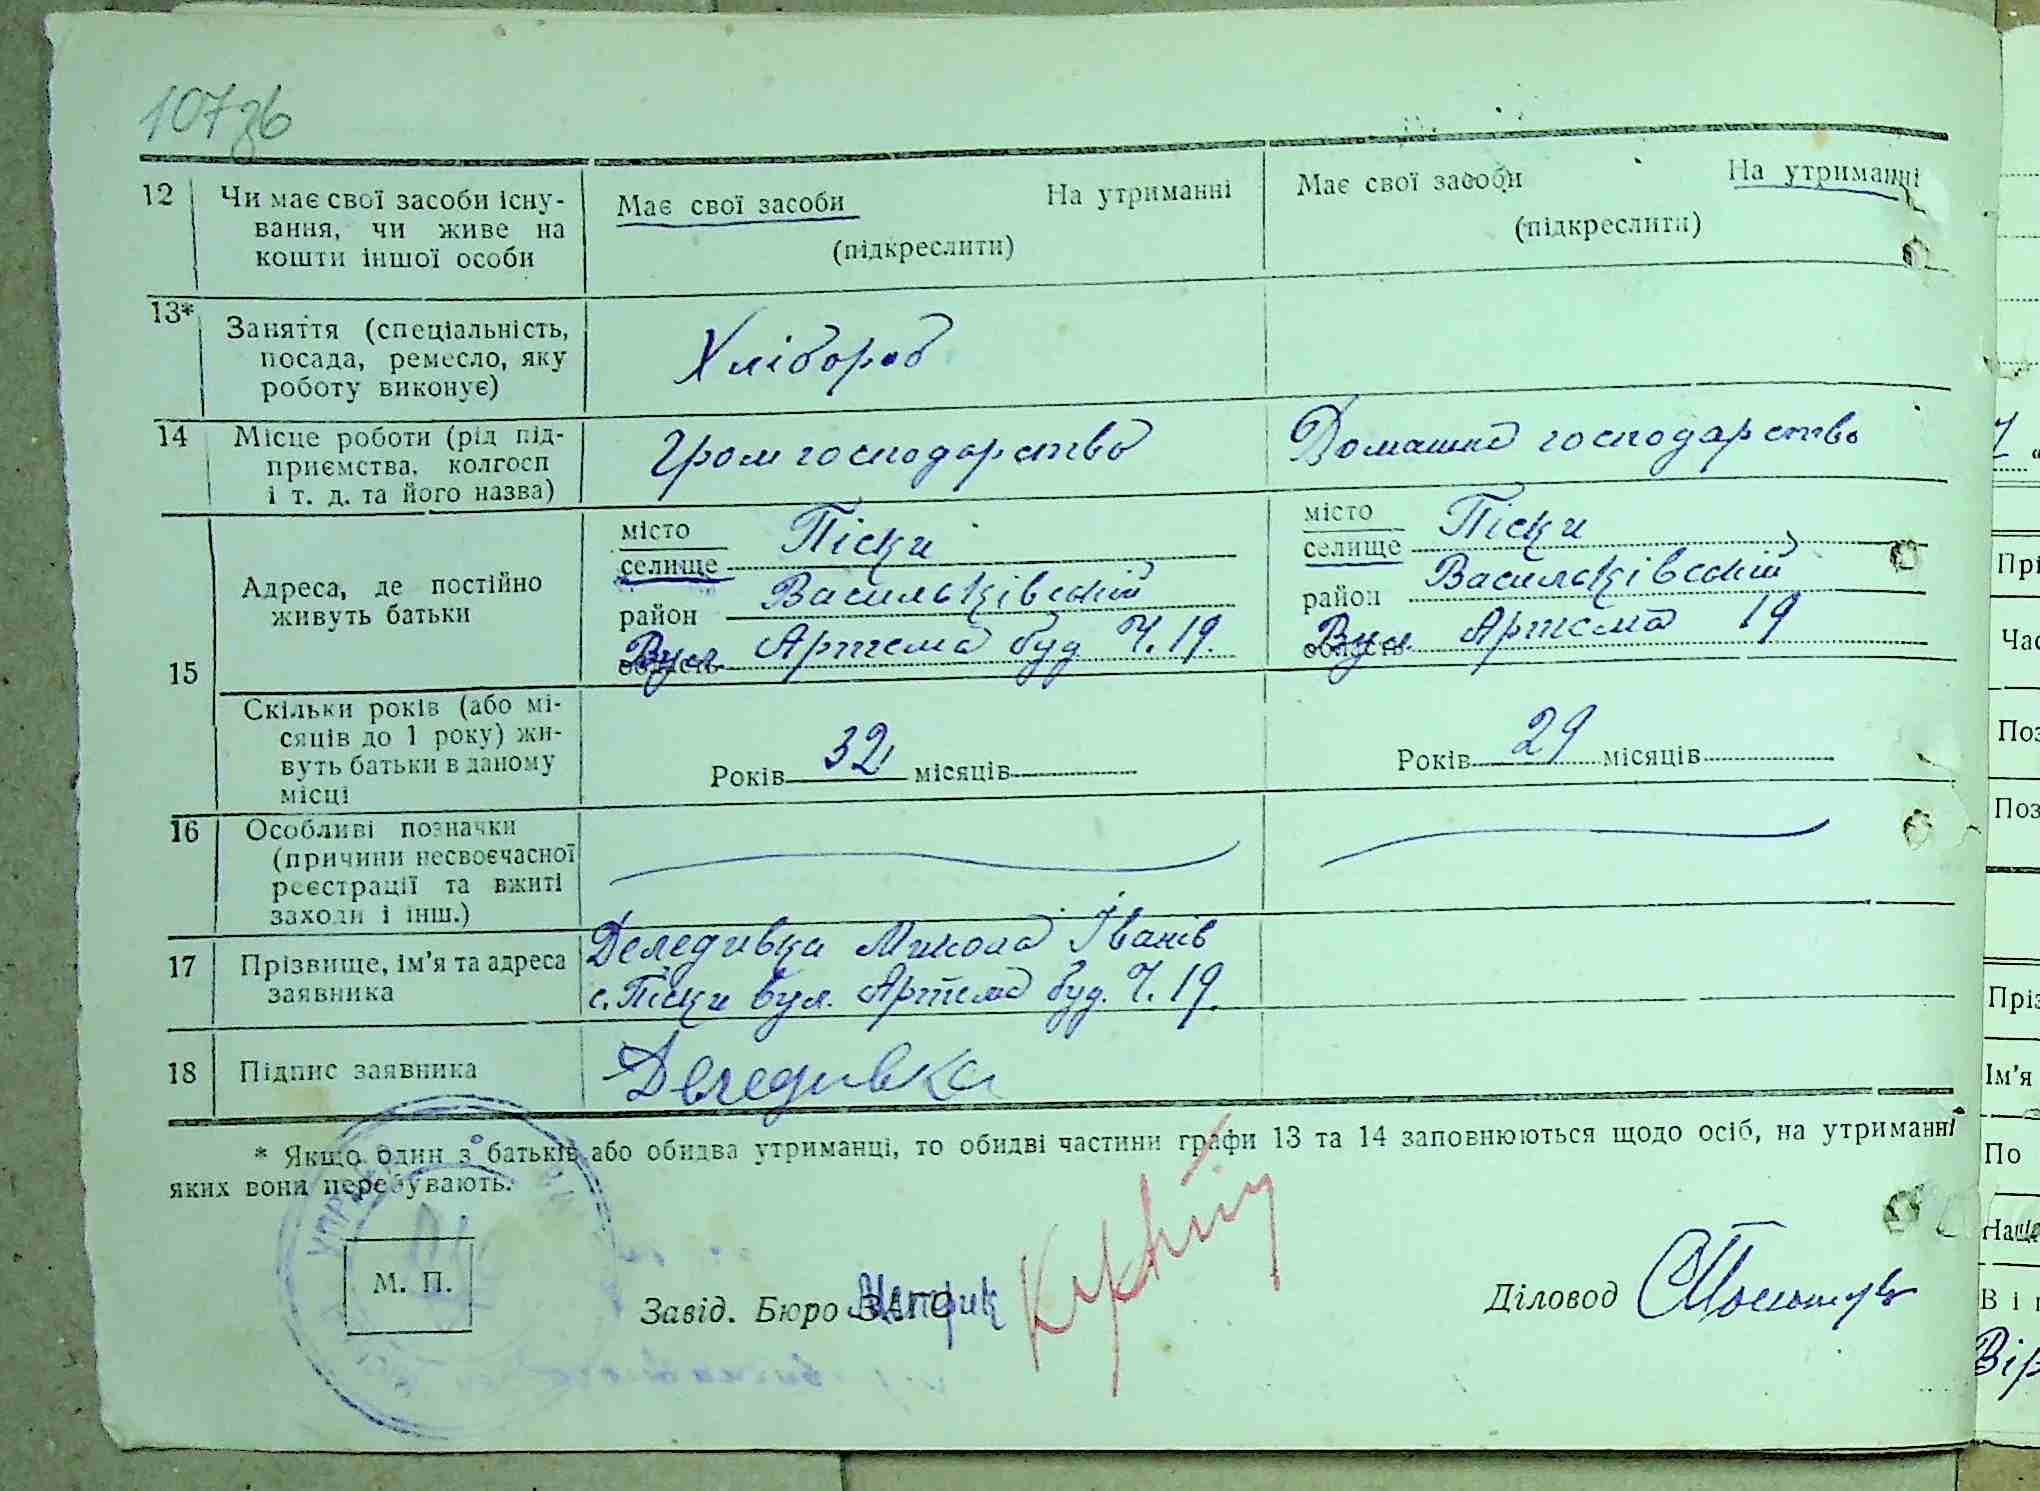 107зв
12 Чи має свої засоби існу- Має свої засоби На утриманні Має свої засоби На утриманні
вання, чи живе на (підкреслити) (підкреслити)
кошти іншої особи
13* Заняття (спеціальність, Хлібороб
посада, ремесло, яку
роботу виконує)
14 Місце роботи (рід під- Громгосподарство Домашнє господарство
приємства, колгосп
і т. д. та його назва)
15 Адреса, де постійно живуть батьки
місто
селище Піски
район Васильківський
область Вул. Артема буд Ч. 19.
місто
селище Піски
район Васильківський
область Вул. Артема 19
Скільки років (або мі-
сяців до 1 року) жи-
вуть батьки в даному
місці
Років 32 місяців Років 29 місяців
16 Особливі позначки
(причини несвоєчасної
реєстрації та вжиті
заходи і інш.)
17 Прізвище, ім'я та адреса Деледивка Микола Іванів
заявника с. Піски вул. Артема буд. Ч. 19.
18 Підпис заявника Деледивка
* Якщо один з батьків або обидва утриманці, то обидві частини графи 13 та 14 заповнюються щодо осіб, на утриманні
яких вони перебувають.
М. П.
Завід. Бюро ЗАГС
Діловод
Прі
Час
Поз
Поз
Пріз
Ім'я
По
Наці
Віг
Вір